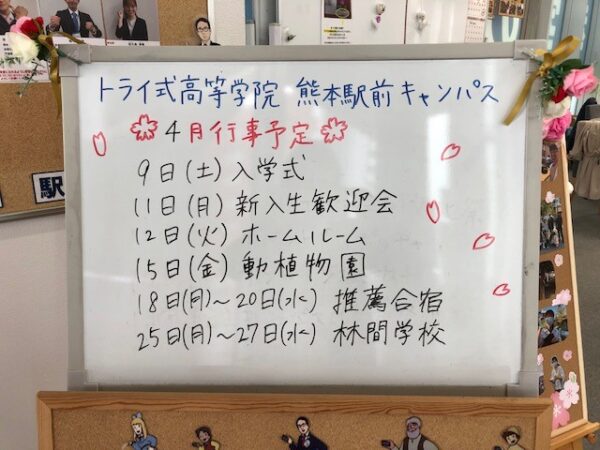 トライ式高等学院 熊本駅前キャンパス
4月行事予定
9日(土) 入学式
11日(月) 新入生歓迎会
12日(火) ホームルーム
15日(金) 動植物園
18日(月)～20日(水) 推薦合宿
25日(月)～27日(水) 林間学校
駅